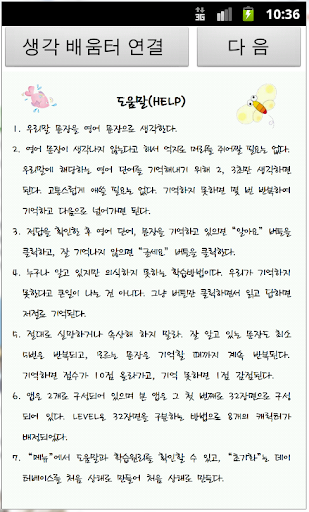 3G 10:36
생각 배움터 연결
다 음
도움말(HELP)
1. 우리말 문장을 영어 문장으로 생각한다.
2. 영어 문장이 생각나지 않는다고 해서 억지로 머리를 쥐어짤 필요는 없다.
우리말에 해당하는 영어 단어를 기억해내기 위해 2, 3초만 생각하면
된다. 고통스럽게 애쓸 필요는 없다. 기억하지 못하면 몇 번 반복하여
기억하고 다음으로 넘어가면 된다.
3. 정답을 확인한 후 영어 단어, 문장을 기억하고 있으면 "알아요" 버튼을
클릭하고, 잘 기억나지 않으면 "글쎄요" 버튼을 클릭한다.
4. 누구나 알고 있지만 의식하지 못하는 학습방법이다. 우리가 기억하지
못한다고 큰일이 나는 건 아니다. 그냥 버튼만 클릭하면서 읽고 답하면
저절로 기억된다.
5. 절대로 실망하거나 속상해 하지 말라. 잘 알고 있는 문장도 최소
5번은 반복되고, 모르는 문장은 기억할 때까지 계속 반복된다.
기억하면 점수가 10점 올라가고, 기억 못하면 1점 감점된다.
6. 앱은 2개로 구성되어 있으며 본 앱은 그 첫 번째로 32장면으로 구성
되어 있다. LEVEL은 32장면을 구분하는 방법으로 8개의 캐릭터가
배정되었다.
7. "메뉴"에서 도움말과 학습원리를 확인할 수 있고, "초기화"는 데이
터베이스를 처음 상태로 만들어 처음 상태로 만든다.